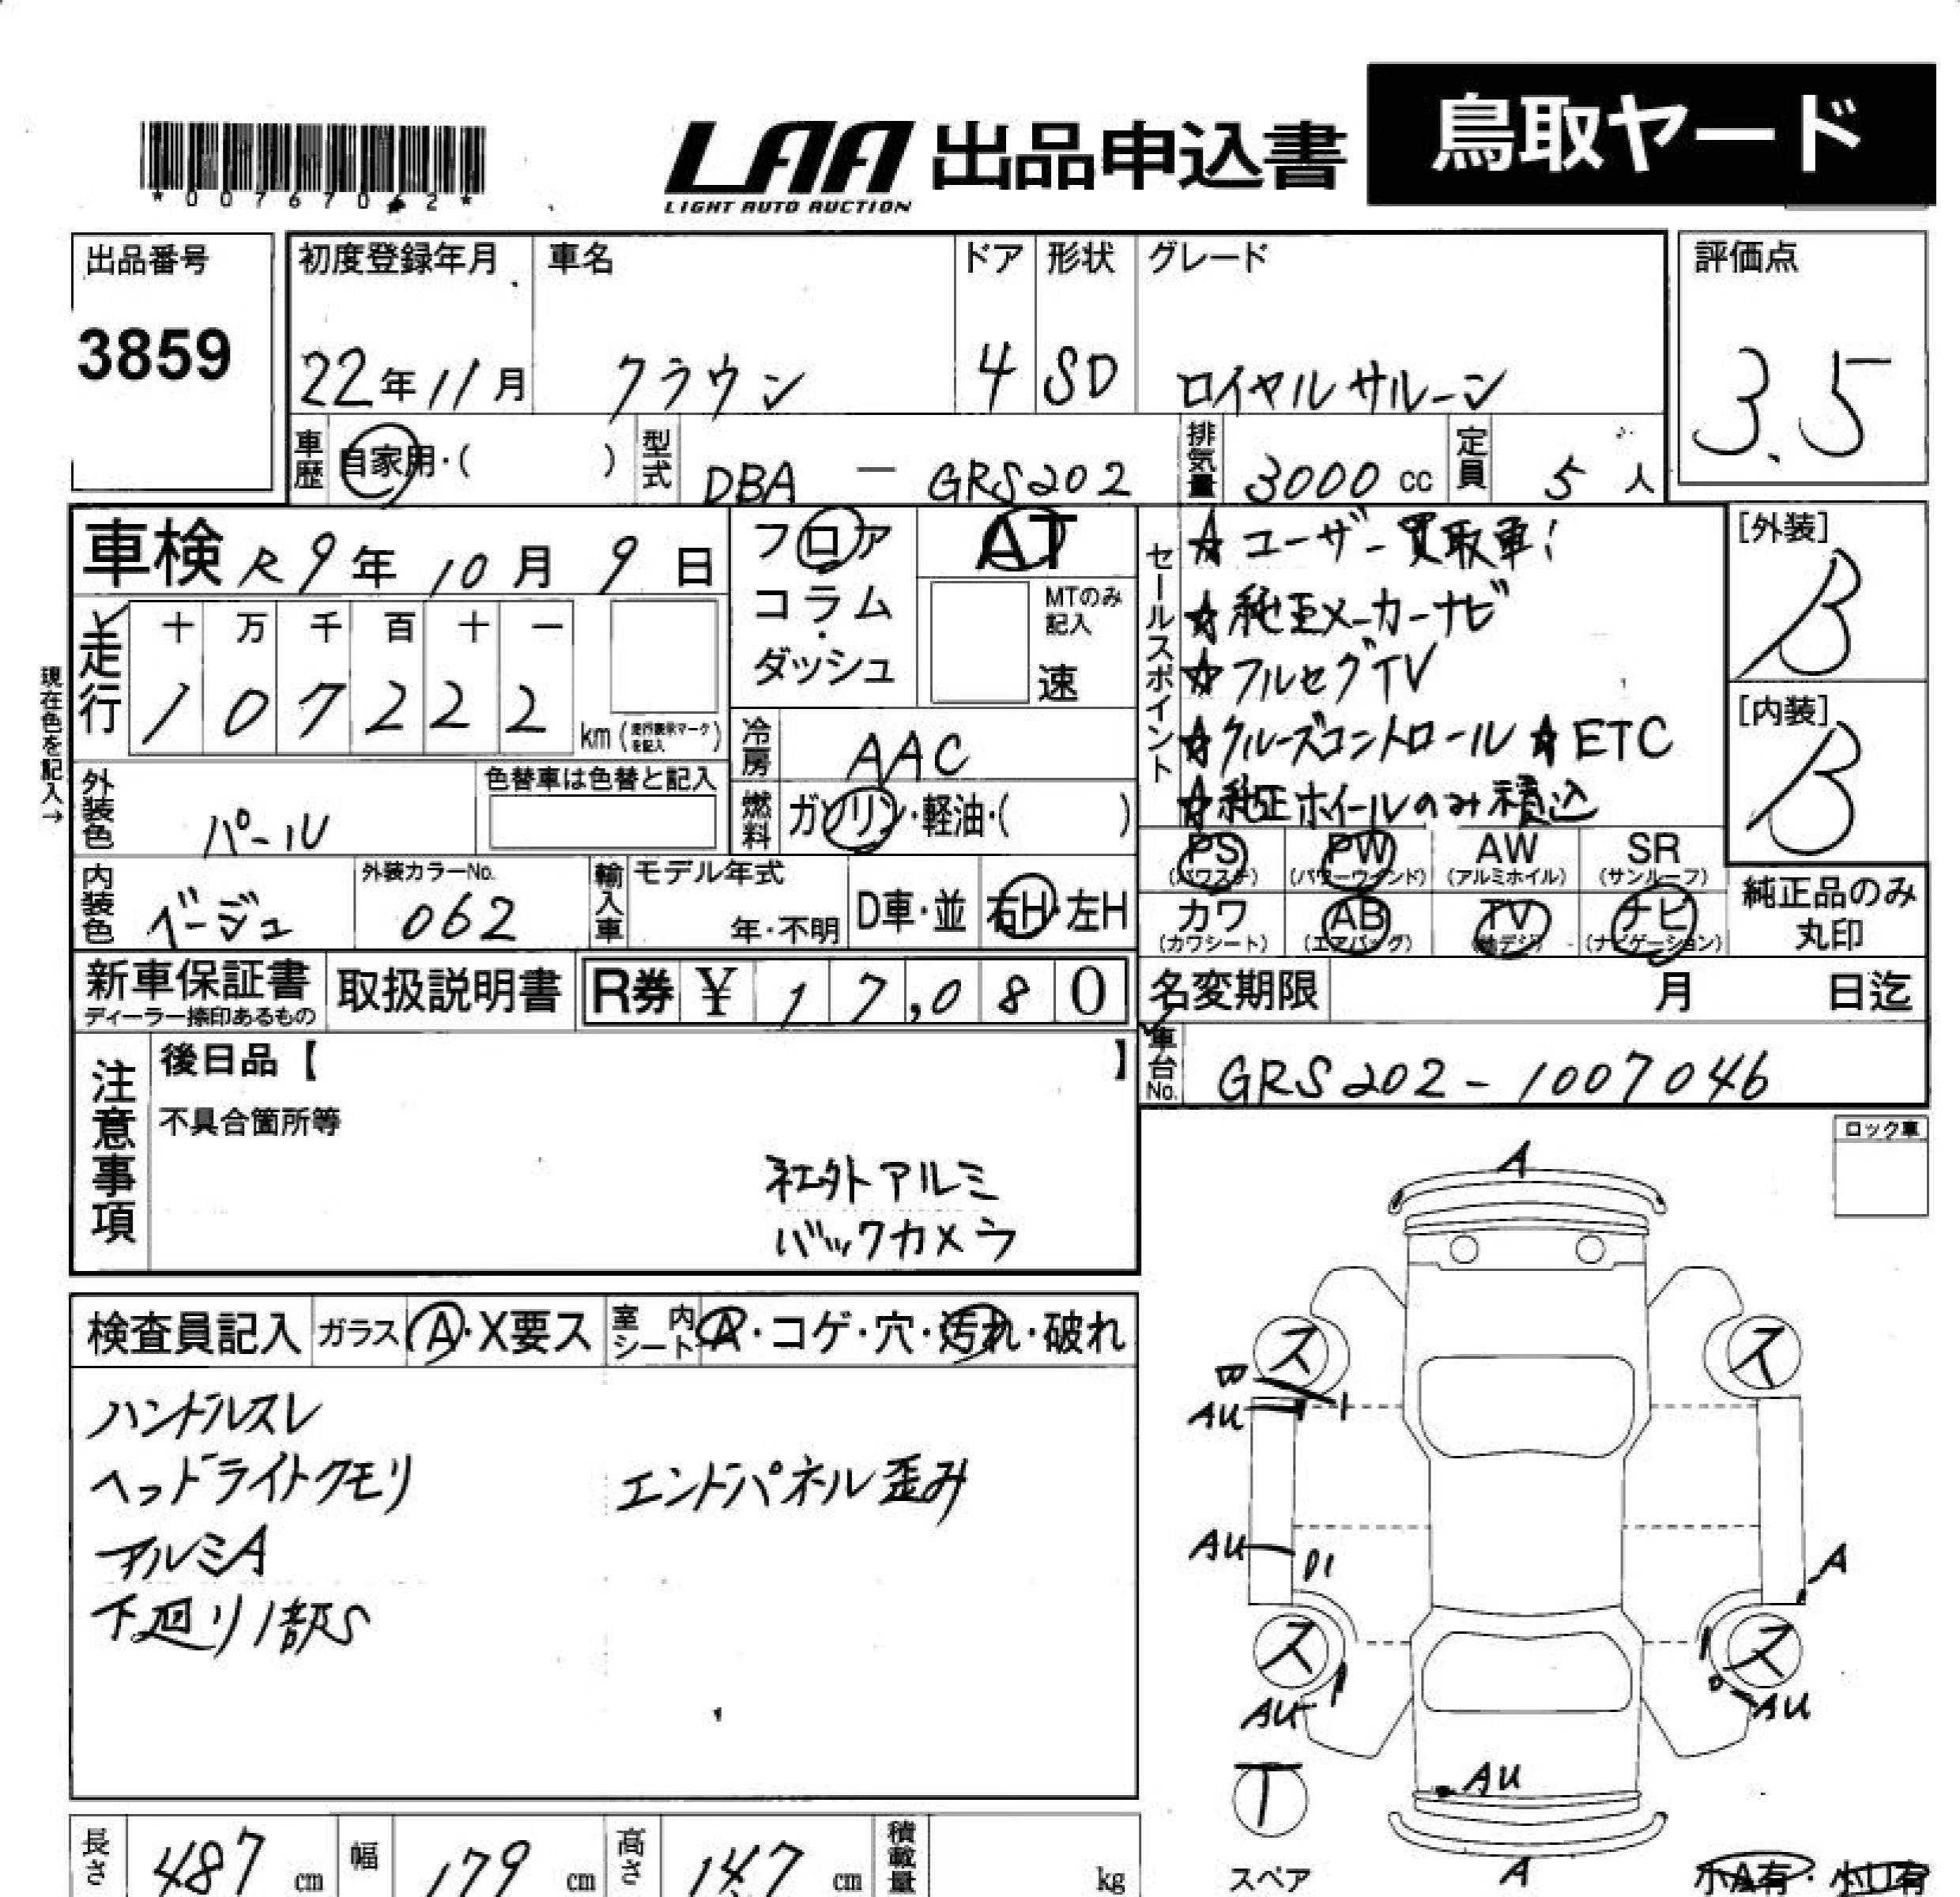 鳥取ヤード
LAA 出品申込書
LIGHT AUTO AUCTION
出品番号 初度登録年月 車名 ドア 形状 グレード 評価点
3859 22年11月 クラウン 4 SD ロイヤルサルーン 3.5
車歴 自家用・( ) 型式 DBA — GRS202 排気量 3000 cc 定員 5 人
車検 R9年10月9日 フロア AT
コラム・ダッシュ MTのみ記入 速
セールスポイント
☆ユーザー買取車!
☆純正メーカーナビ
☆フルセグTV
☆クルーズコントロール ☆ETC
☆純正ホイールのみ積込
[外装] B
[内装] B
現在色を記入→
走行 十 万 千 百 十 一
1 0 7 2 2 2 km (走行表示マークを記入)
冷房 AAC
外装色 パール 色替車は色替と記入
燃料 ガソリン・軽油・( )
PS (パワステ) PW (パワーウインド) AW (アルミホイル) SR (サンルーフ)
カワ (カワシート) AB (エアバッグ) TV (地デジ) ナビ (ナビゲーション)
純正品のみ丸印
内装色 ベージュ 外装カラーNo. 062 輸入車 モデル年式 年・不明 D車・並 右H・左H
新車保証書 ディーラー捺印あるもの 取扱説明書 R券 ¥ 17,080
名変期限 月 日迄
車台No. GRS202-1007046
注意事項 後日品【 】
不具合箇所等
社外アルミ
バックカメラ
ロック車
検査員記入 ガラス A・X要ス 室内シート A・コゲ・穴・汚れ・破れ
ハンドルスレ
ヘッドライトクモリ エンドパネル歪み
アルミA
下廻り1部S
A
ス ス
B
AU
AU D1 A
ス ス
AU AU
T AU
スペア A
小A有・小U有
長さ 487 cm 幅 179 cm 高さ 147 cm 積載量 kg